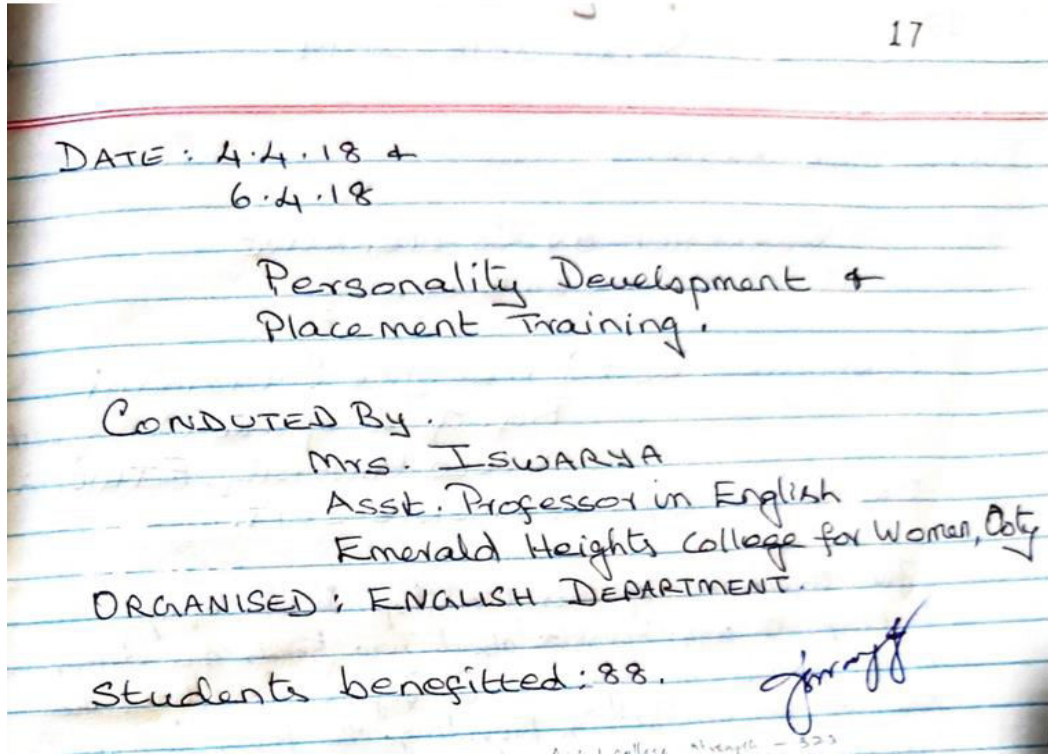 17
DATE: 4.4.18 &
6.4.18
Personality Development &
Placement Training.
CONDUTED By.
Mrs. ISWARYA
Asst. Professor in English
Emerald Heights College for Women, Ooty
ORGANISED: ENGLISH DEPARTMENT.
Students benefitted: 88.
college strength - 323